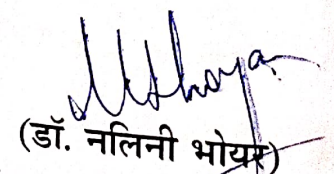 (डॉ. नलिनी भोयर)